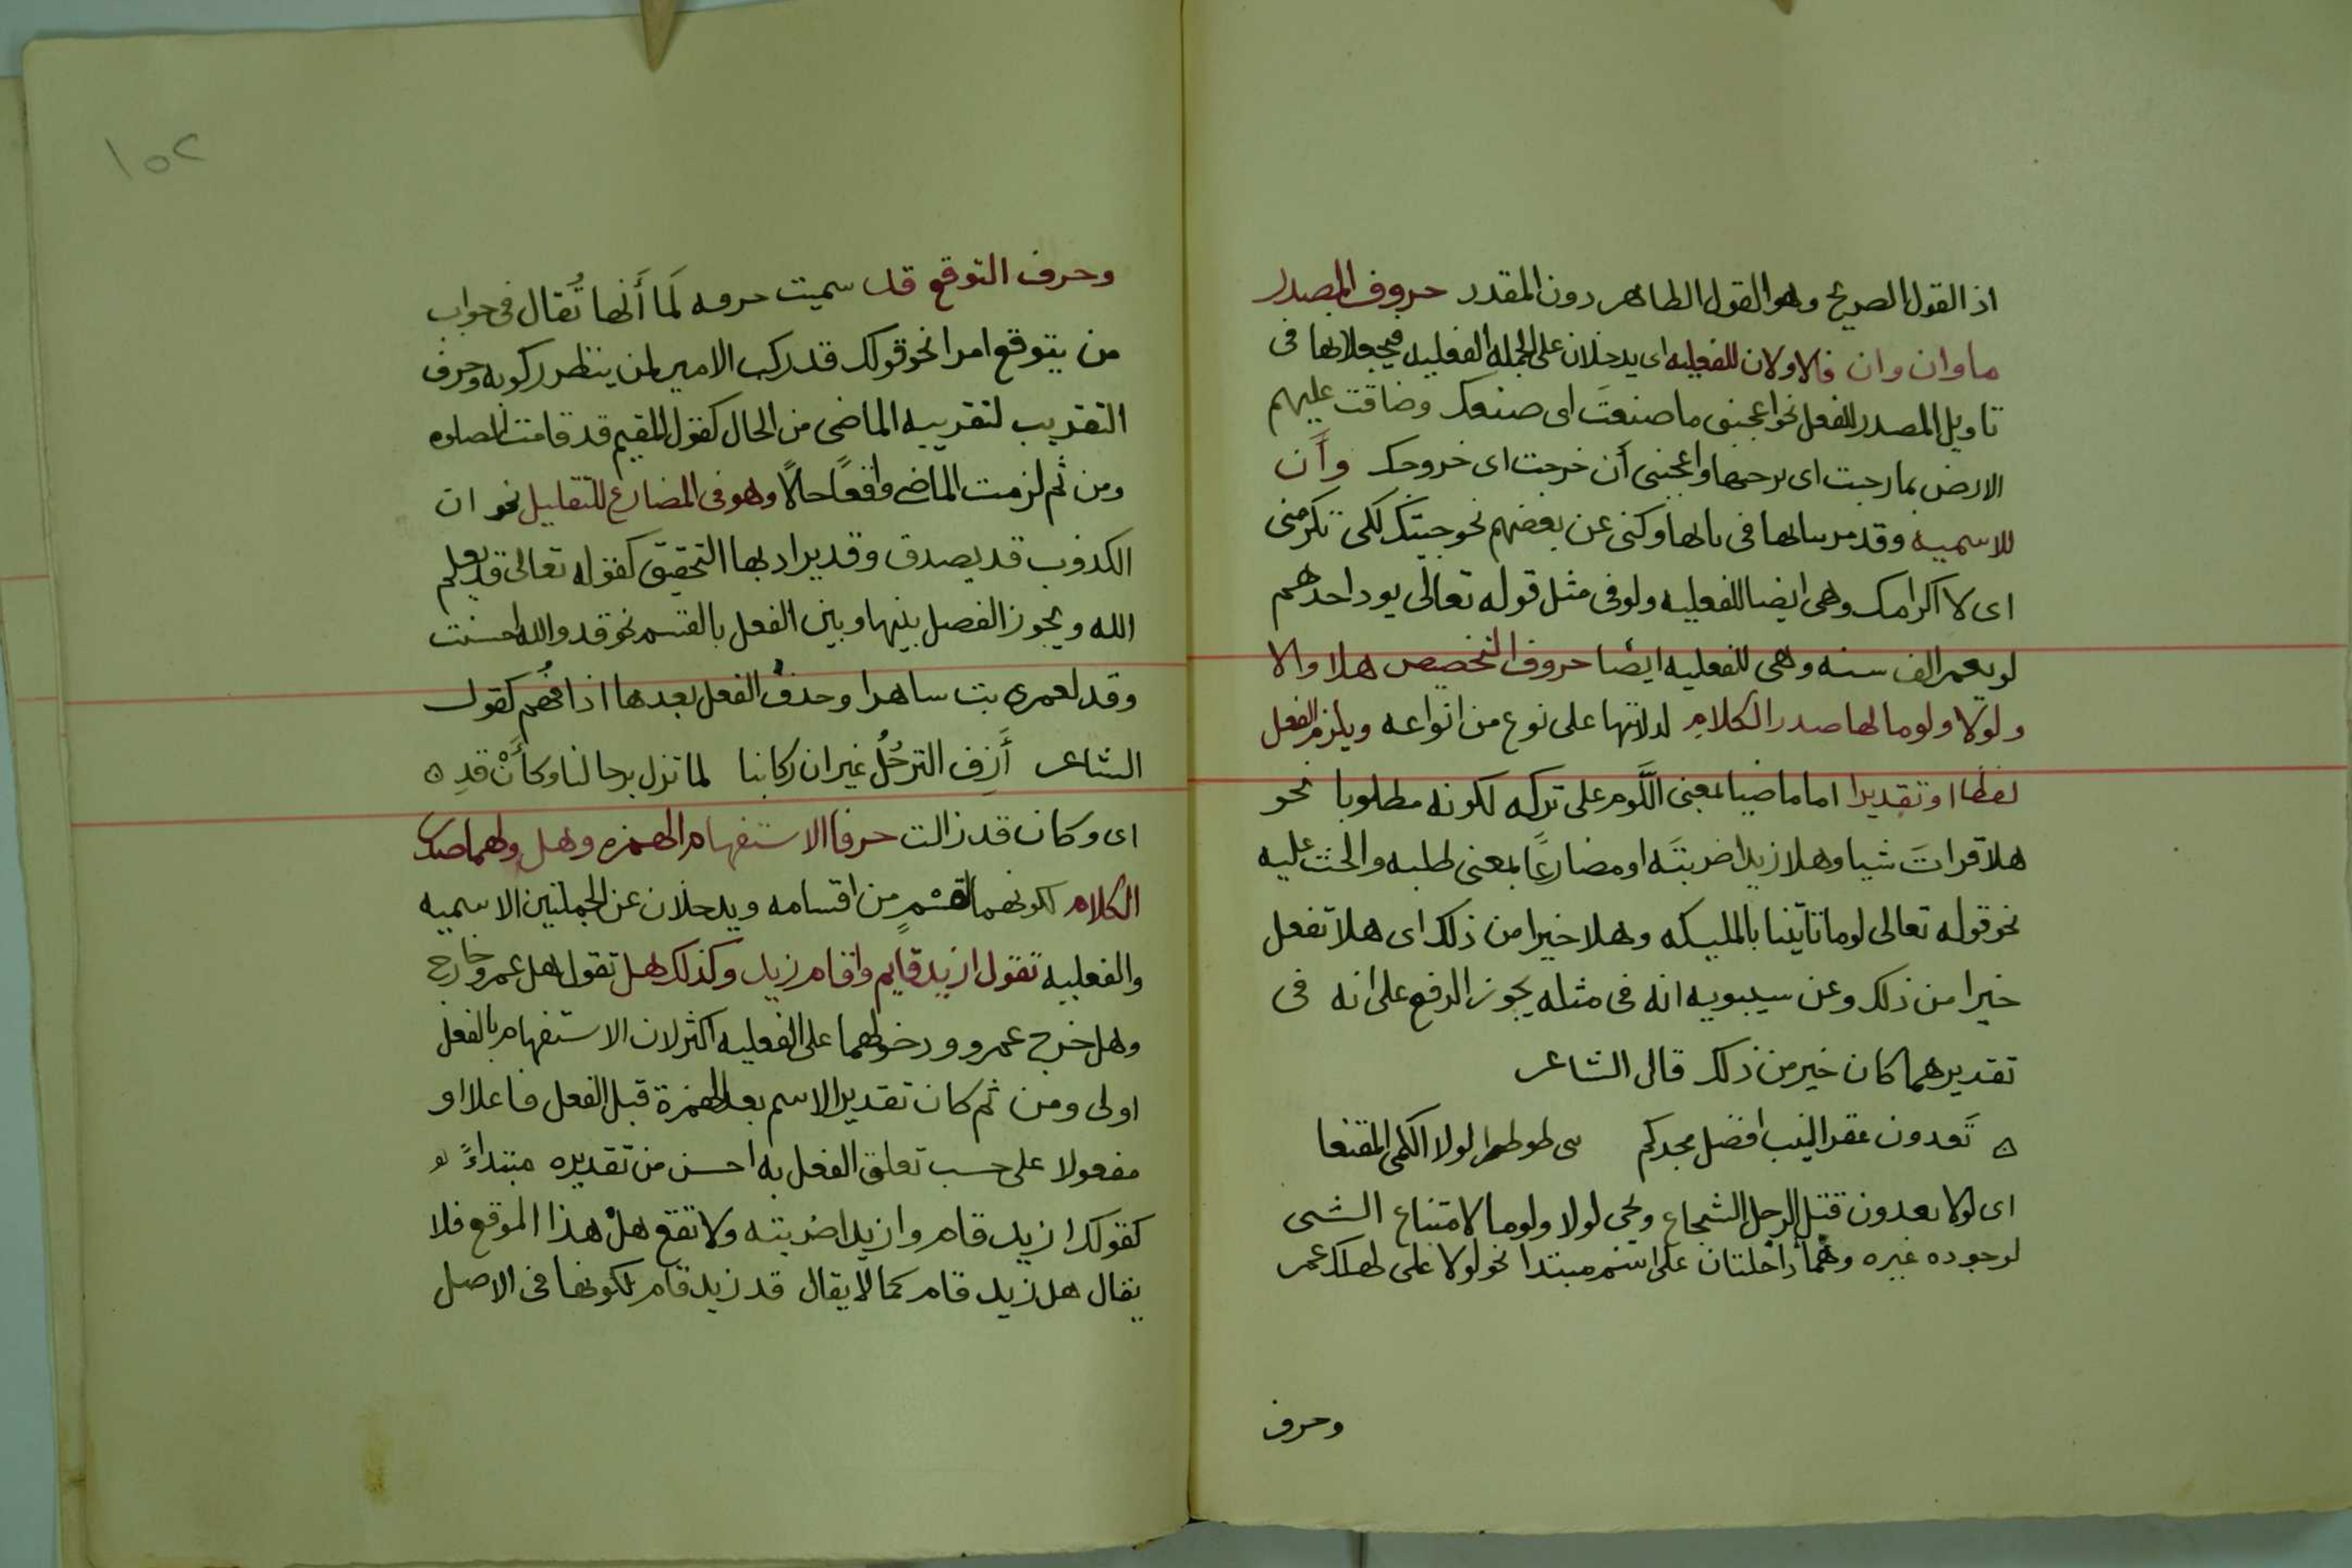 اذ القول الصريح وهو القول الظاهر دون المقدر حروف المصدر
ما وان وان فالاولان للفعليه اى يدخلان على الجمله الفعليه فيجعلانها فى
تاويل المصدر للفعل نحو اعجبنى ما صنعتَ اى صنعك وضاقت عليهم
الارض بما رحبت اى برحبها واعجبنى أن خرجت اى خروجك وأَن
للاسميه وقد مر بيانها فى بابها وكى عن بعضهم نحو جيتك لكى تكرمنى
اى لاكرامك وهى ايضا للفعليه ولو فى مثل قوله تعالى يود احدهم
لو يعمر الف سنه وهى للفعليه ايضا حروف التخصيص هلا والا
ولولا ولوما لها صدر الكلام لدلالتها على نوع من انواعه ويلزم الفعل
لفظا او تقديرا اما ماضيا بمعنى اللَّوم على تركه لكونه مطلوبا نحو
هلا قراتَ شيا وهلا زيدا ضربتَه او مضارعًا بمعنى طلبه والحث عليه
نحو قوله تعالى لوما تاتينا بالمليكه وهلا خيرا من ذلك اى هلا تفعل
خيرا من ذلك وعن سيبويه انه فى مثله يجوز الرفع على انه فى
تقديرهما كان خير من ذلك قال الشاعر
ه تَعدون عقر النيب افضل مجدكم لولا الكمى المقنعا
اى لولا تعدون قتل الرجل الشجاع ويجى لولا ولوما لامتناع الشى
لوجوده غيره وهُما داخلتان على اسم مبتدا نحو لولا على لهلك عمر
وحرف
١٥٢
وحرف التوقع قد سميت حرفه لَما أَنها تُقال فى جواب
من يتوقع امرا نحو قولك قد ركب الامير لمن ينتظر ركوبه وحرف
التقريب لتقريبه الماضى من الحال كقول المقيم قد قامت الصلوه
ومن ثم لزمت الماضى واقعًا حالًا وهو فى المضارع للتقليل نحو ان
الكذوب قد يصدق وقد يراد بها التحقيق كقوله تعالى قد يعلم
الله ويجوز الفصل بينها وبين الفعل بالقسم نحو قد والله احسنت
وقد لعمرى بت ساهرا وحذفُ الفعل بعدها اذا فُهم كقول
الشاعر أَزِف الترحُلُ غير ان ركابنا لما تزل برحالنا وكأَنْ قدِ ه
اى وكان قد زالت حرفا الاستفهام الهمزه وهل ولهما صدر
الكلام لكونهما لقسْمٍ من اقسامه ويدخلان عن الجملتين الاسميه
والفعليه تقول ازيد قايم واقام زيد وكذلك هل تقول هل عمرو خارج
وهل خرج عمرو ودخولهما على الفعليه اكثر لان الاستفهام بالفعل
اولى ومن ثم كان تقدير الاسم بعد الهمزة قبل الفعل فاعلا او
مفعولا على حسب تعلق الفعل به احسن من تقديره مبتداءً
كقولك ازيد قام وازيدا ضربته ولا تقع هلْ هذا الموقع فلا
يقال هل زيد قام كما لا يقال قد زيد قام لكونها فى الاصل